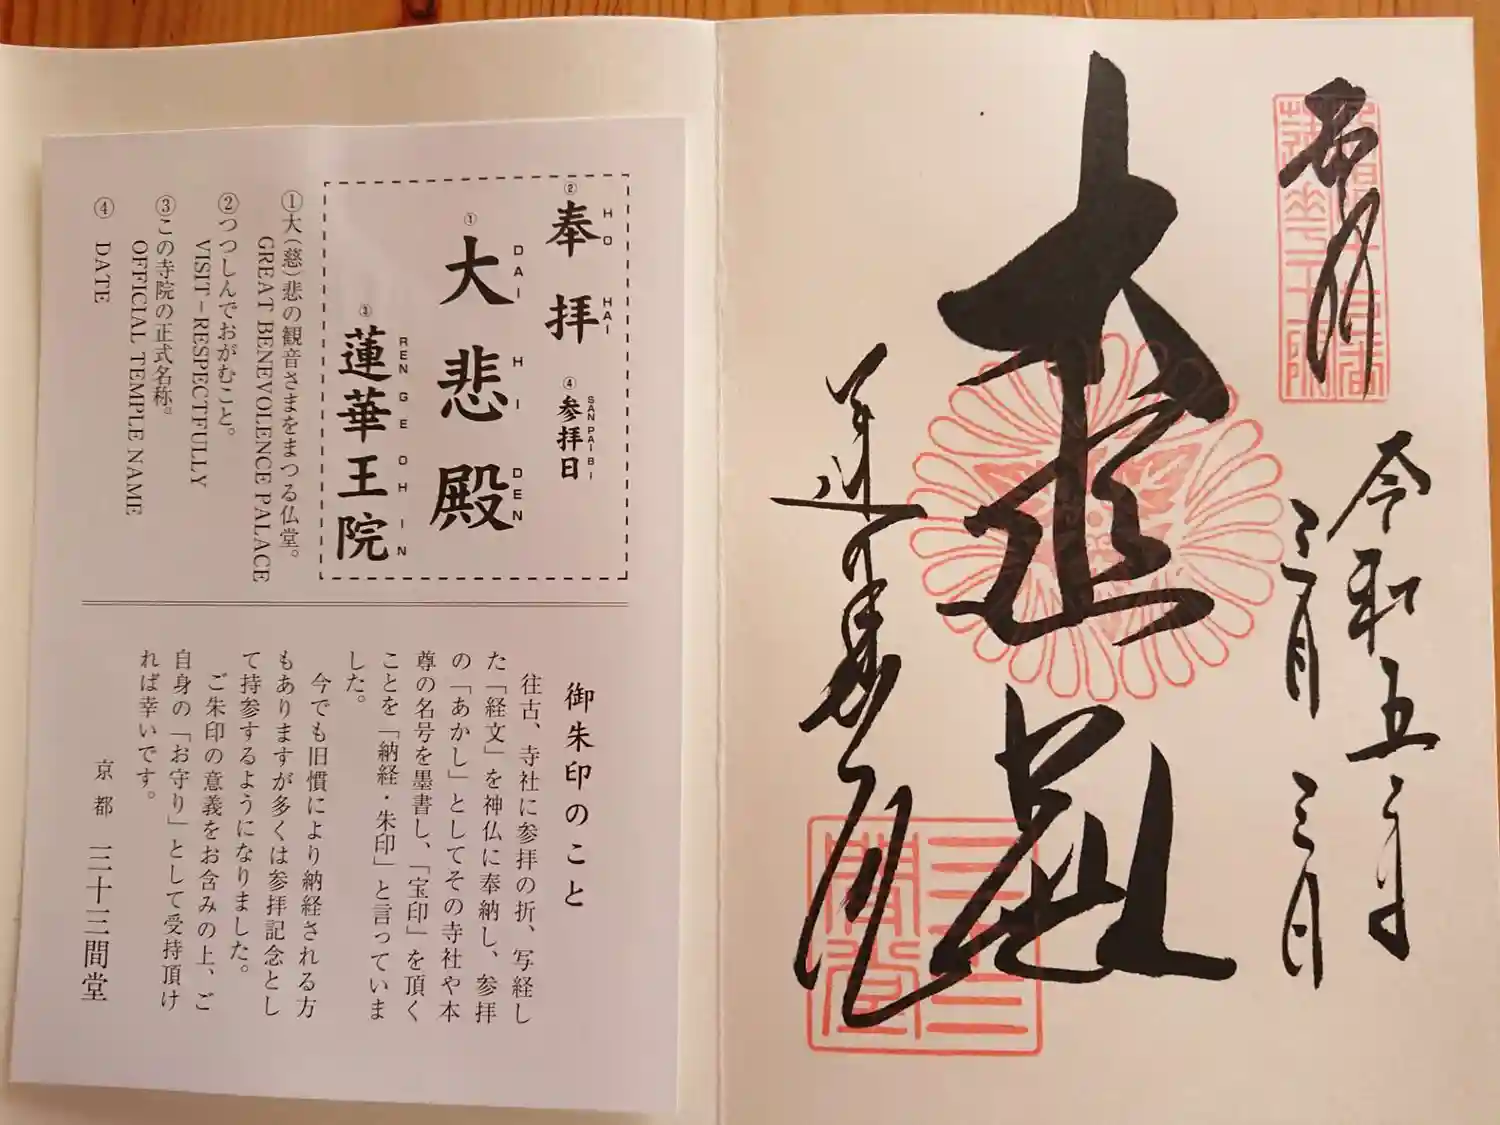 ② 奉拝
HO HAI
④ 参拝日
SAN PAI BI
① 大悲殿
DAI HI DEN
③ 蓮華王院
REN GE OH IN
①大(慈)悲の観音さまをまつる仏堂。
GREAT BENEVOLENCE PALACE
②つつしんでおがむこと。
VISIT－RESPECTFULLY
③この寺院の正式名称。
OFFICIAL TEMPLE NAME
④ DATE
御朱印のこと
往古、寺社に参拝の折、写経し
た「経文」を神仏に奉納し、参拝
の「あかし」としてその寺社や本
尊の名号を墨書し、「宝印」を頂く
ことを「納経・朱印」と言っていま
した。
今でも旧慣により納経される方
もありますが多くは参拝記念とし
て持参するようになりました。
ご朱印の意義をお含みの上、ご
自身の「お守り」として受持頂け
れば幸いです。
京都 三十三間堂
奉拝
令和五年
三月三日
大悲殿
蓮華王院
三十三
間堂